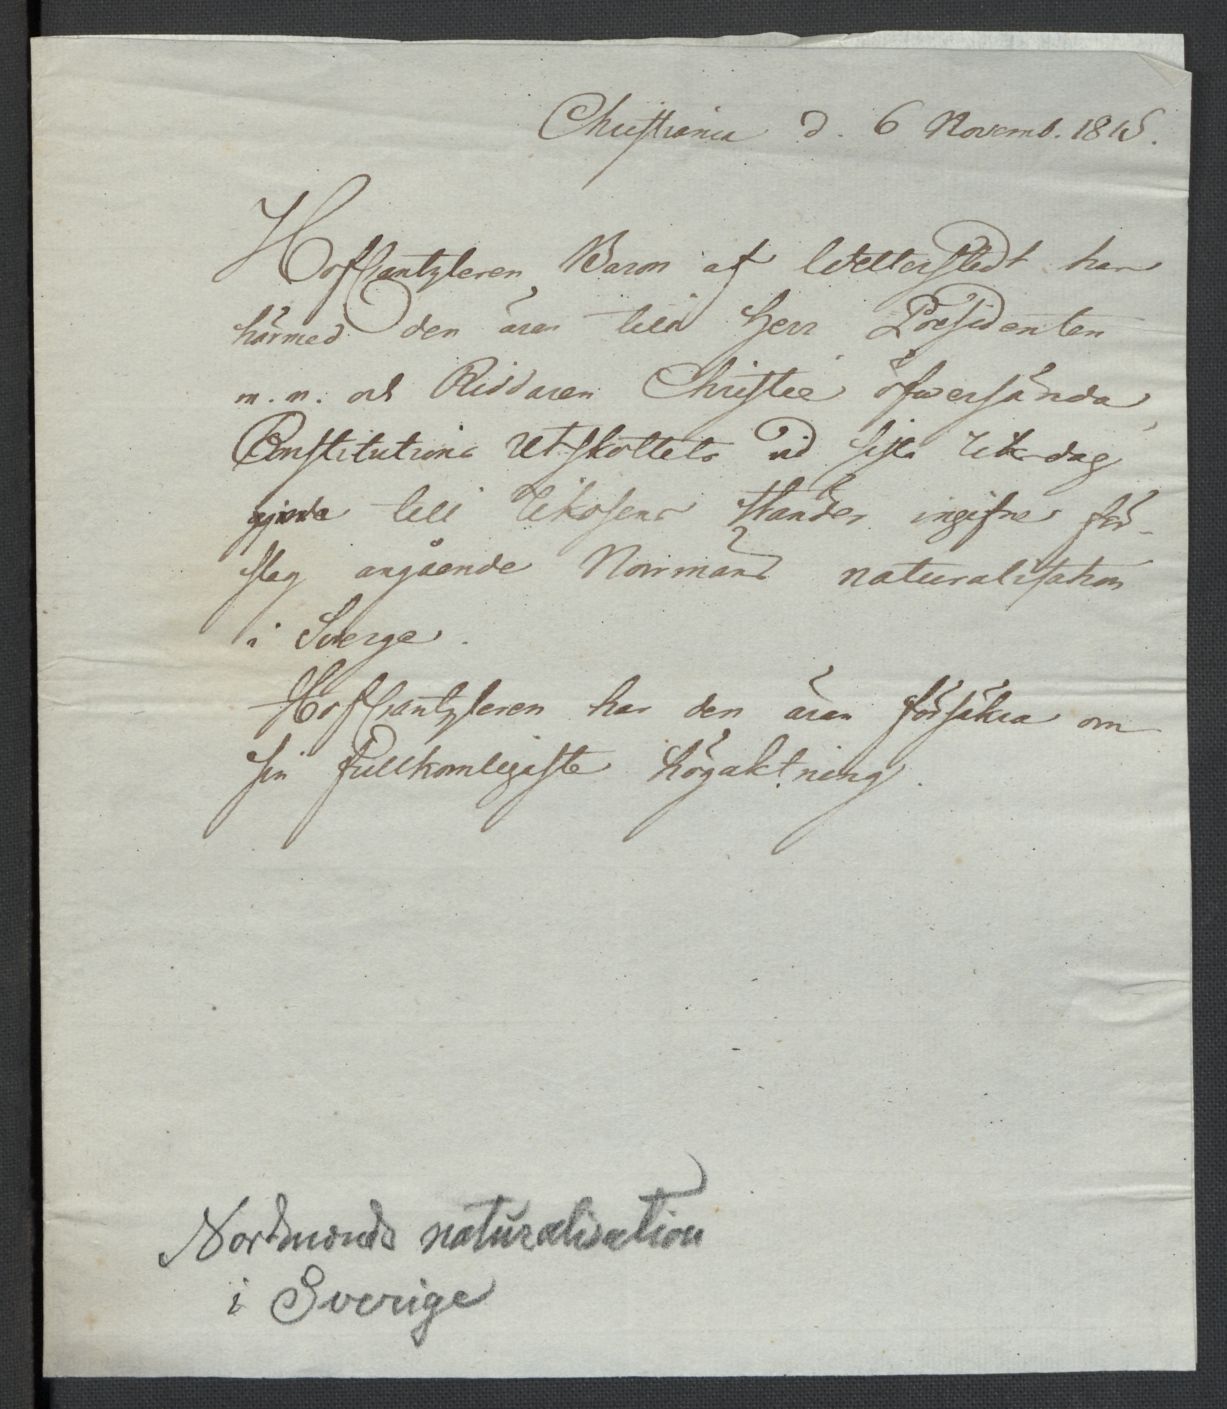 Christiania d. 6 Novemb. 1815.
Hofcantzleren Baron af Wetterstedt har
härmed den äran till Herr Presidenten
m. m. och Riddaren Christie öfversända
Constitutions Utskottets vid sista Riksdag
till Riksens Ständer ingifne för-
slag angående Norrmäns naturalisation
i Sverge.
Hofcantzleren har den äran försäkra om
sin fullkomligaste högaktning.
Nordmænds naturalisation
i Sverige